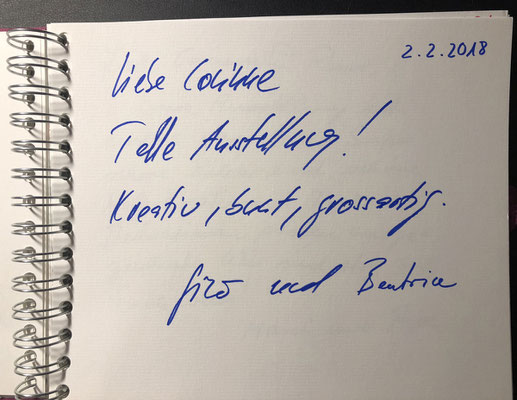 2.2.2018
Liebe Corinne
Tolle Ausstellung!
Kreativ, bunt, grossartig.
und Beatrice